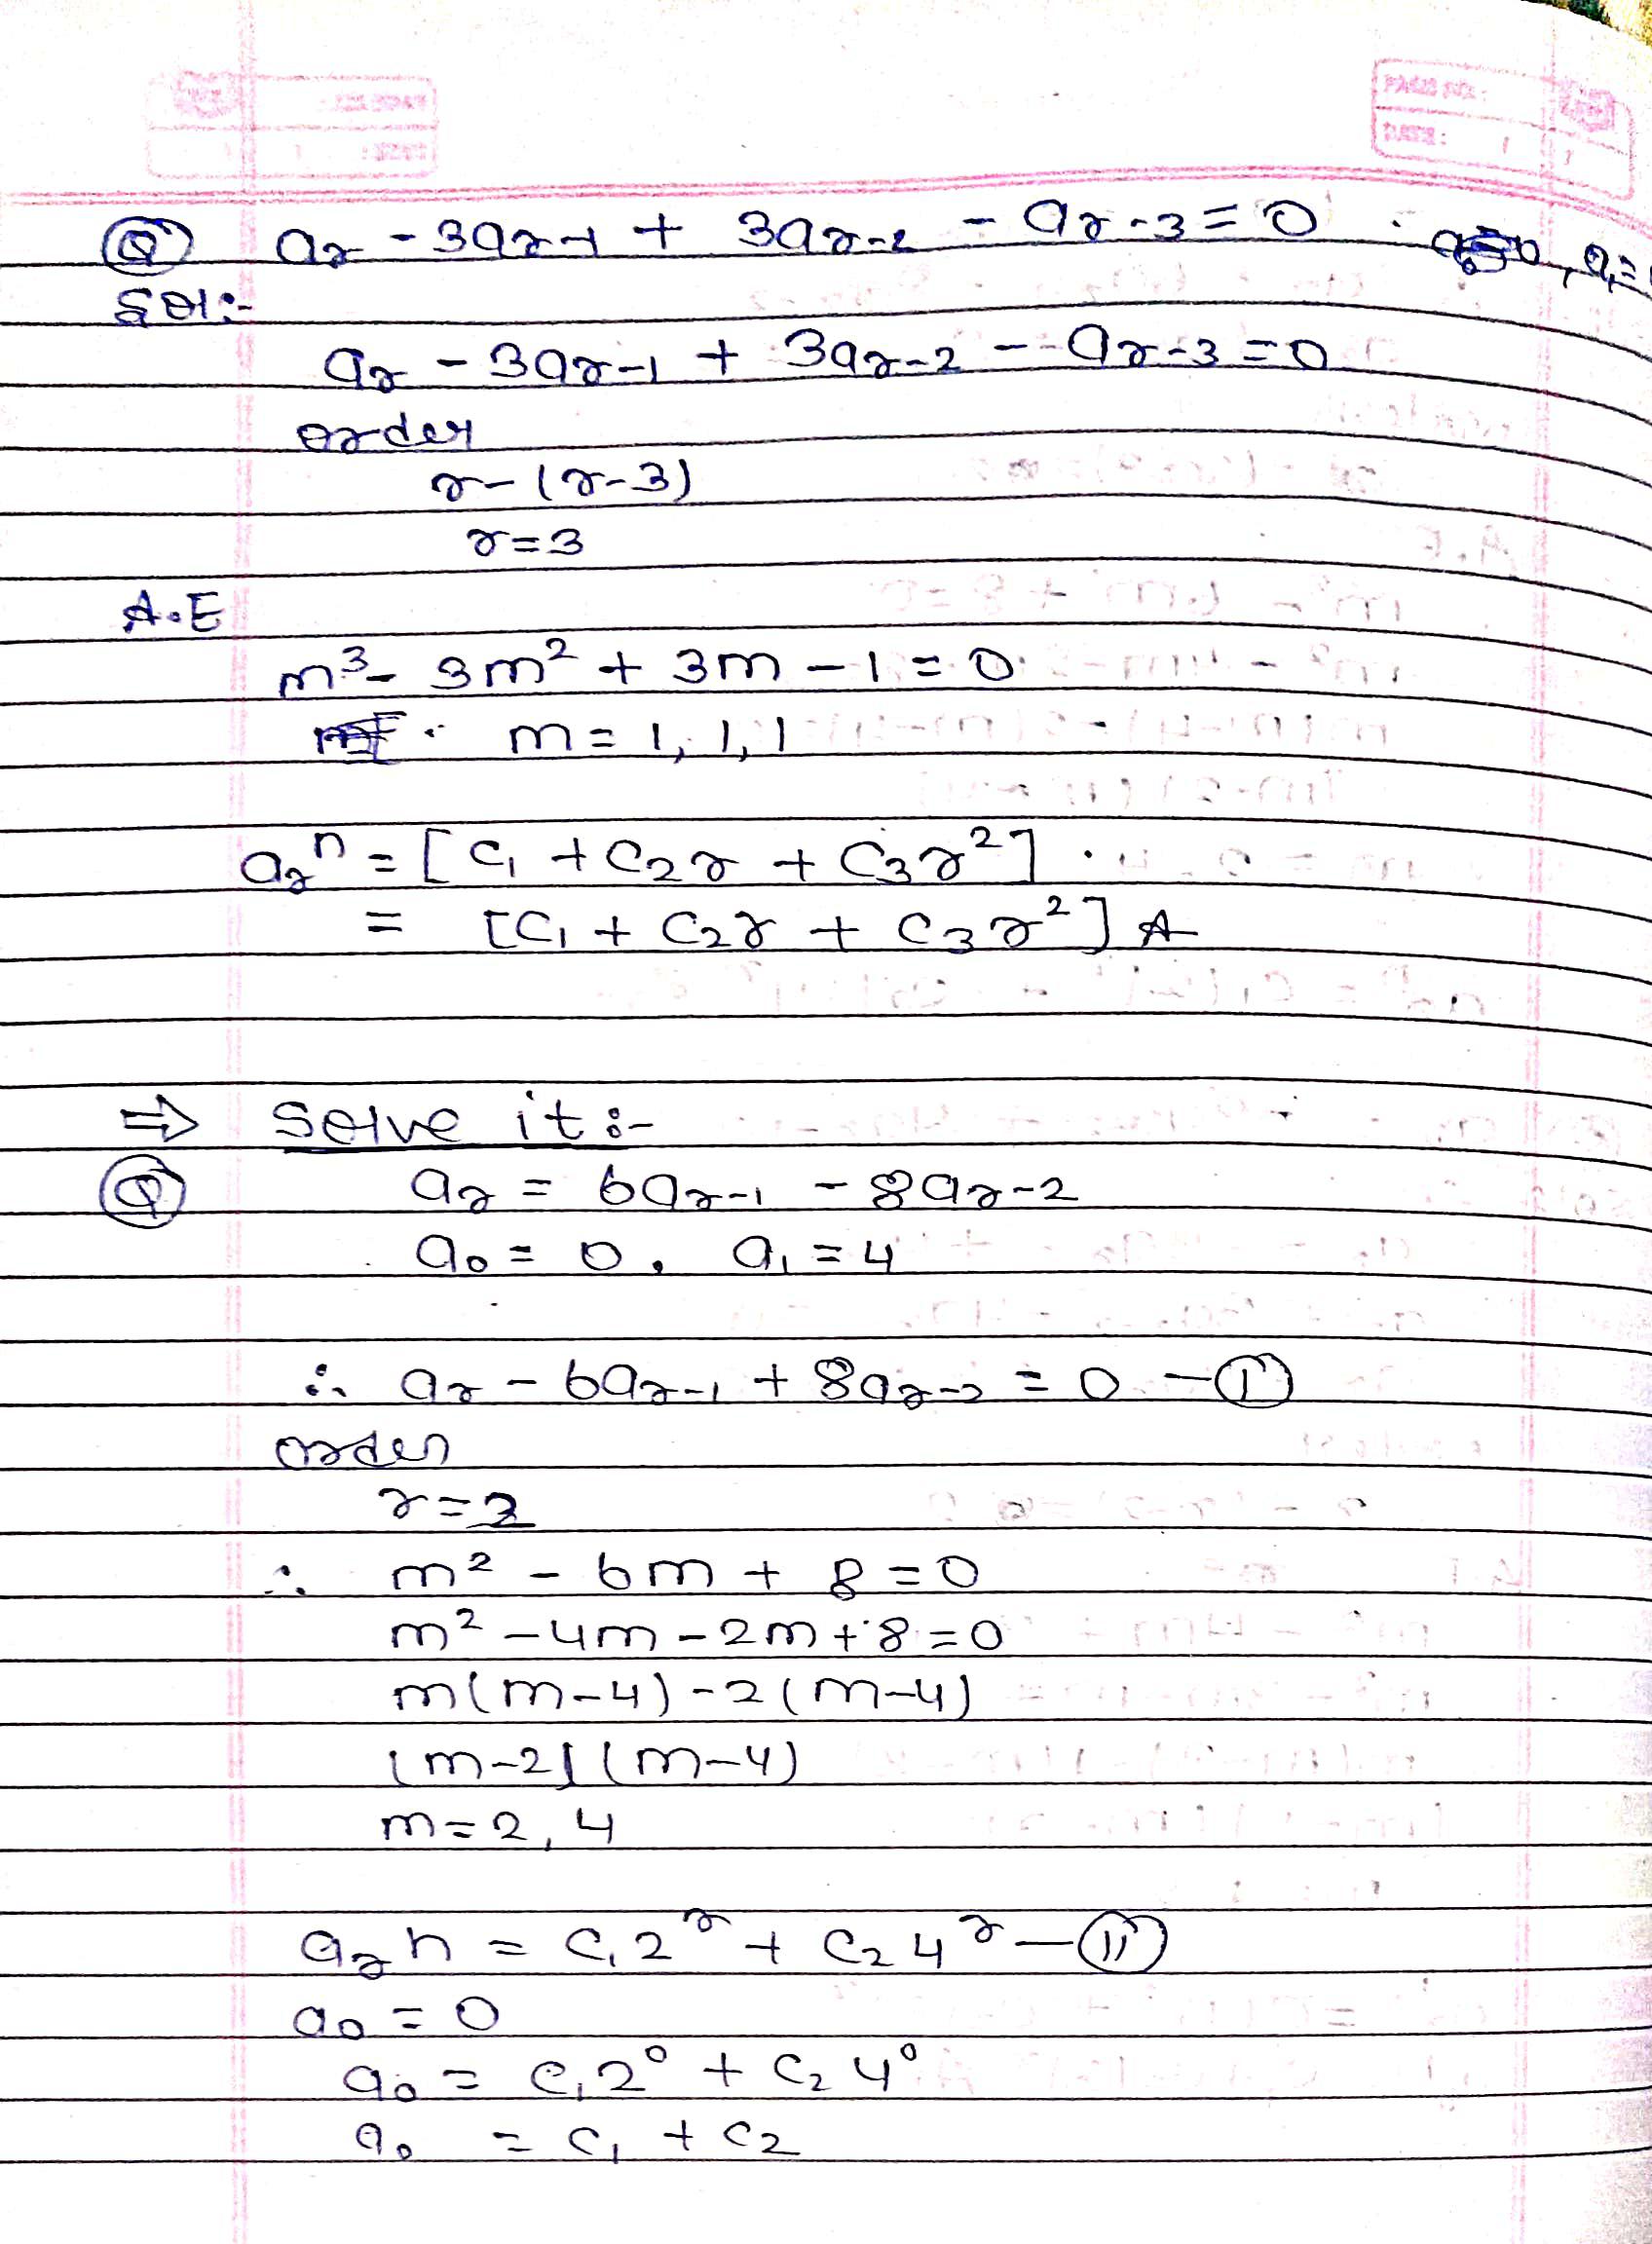 PAGE NO.:
DATE: / /
Q a_r - 3a_{r-1} + 3a_{r-2} - a_{r-3} = 0 . , a_1 =
Sol:-
a_r - 3a_{r-1} + 3a_{r-2} - a_{r-3} = 0
order
r - (r-3)
r = 3
A.E
m³ - 3m² + 3m - 1 = 0
m = 1, 1, 1
a_r^n = [C_1 + C_2 r + C_3 r²] .
= [C_1 + C_2 r + C_3 r²] A
⇒ Solve it :-
Q a_r = 6a_{r-1} - 8a_{r-2}
a_0 = 0, a_1 = 4
∴ a_r - 6a_{r-1} + 8a_{r-2} = 0 — (I)
order
r = 2
∴ m² - 6m + 8 = 0
m² - 4m - 2m + 8 = 0
m(m-4) - 2(m-4)
(m-2)(m-4)
m = 2, 4
a_r n = C_1 2^r + C_2 4^r — (II)
a_0 = 0
a_0 = C_1 2^0 + C_2 4^0
a_0 = C_1 + C_2